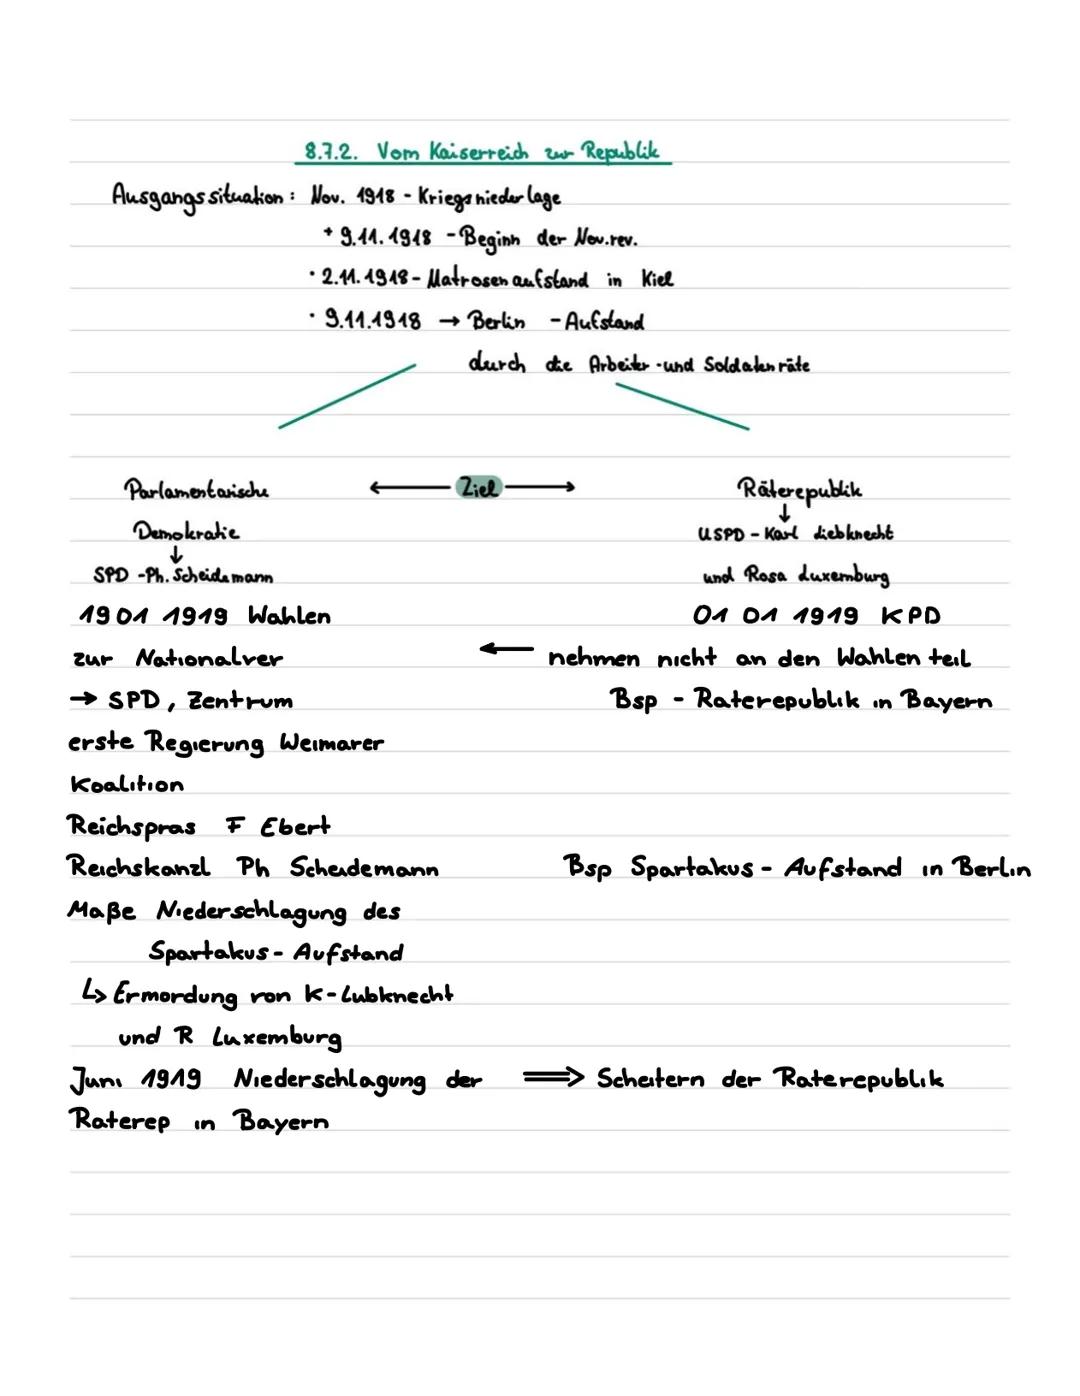 8.7.2. Vom Kaiserreich zur Republik
Ausgangssituation: Nov. 1918 - Kriegsniederlage
+ 9.11.1918 - Beginn der Nov.rev.
· 2.11.1918 - Matrosenaufstand in Kiel
· 9.11.1918 → Berlin - Aufstand
durch die Arbeiter- und Soldatenräte
Parlamentarische ← Ziel → Räterepublik
Demokratie
↓
SPD - Ph. Scheidemann
↓
USPD - Karl Liebknecht
und Rosa Luxemburg
19 01 1919 Wahlen
zur Nationalver
→ SPD, Zentrum
erste Regierung Weimarer
Koalition
Reichspras F Ebert
Reichskanzl Ph Scheidemann
Maße Niederschlagung des
Spartakus - Aufstand
↳ Ermordung von K - Lubknecht
und R Luxemburg
Juni 1919 Niederschlagung der
Raterep in Bayern
01 01 1919 KPD
← nehmen nicht an den Wahlen teil
Bsp - Raterepublik in Bayern
Bsp Spartakus - Aufstand in Berlin
⇒ Scheitern der Raterepublik